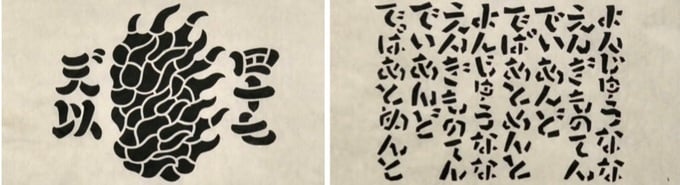 四十七
よんじゅうなな
えんぎものてん
でいあんど
でぱあとめんと
よんじゅうなな
えんぎものてん
でいあんど
でぱあとめんと